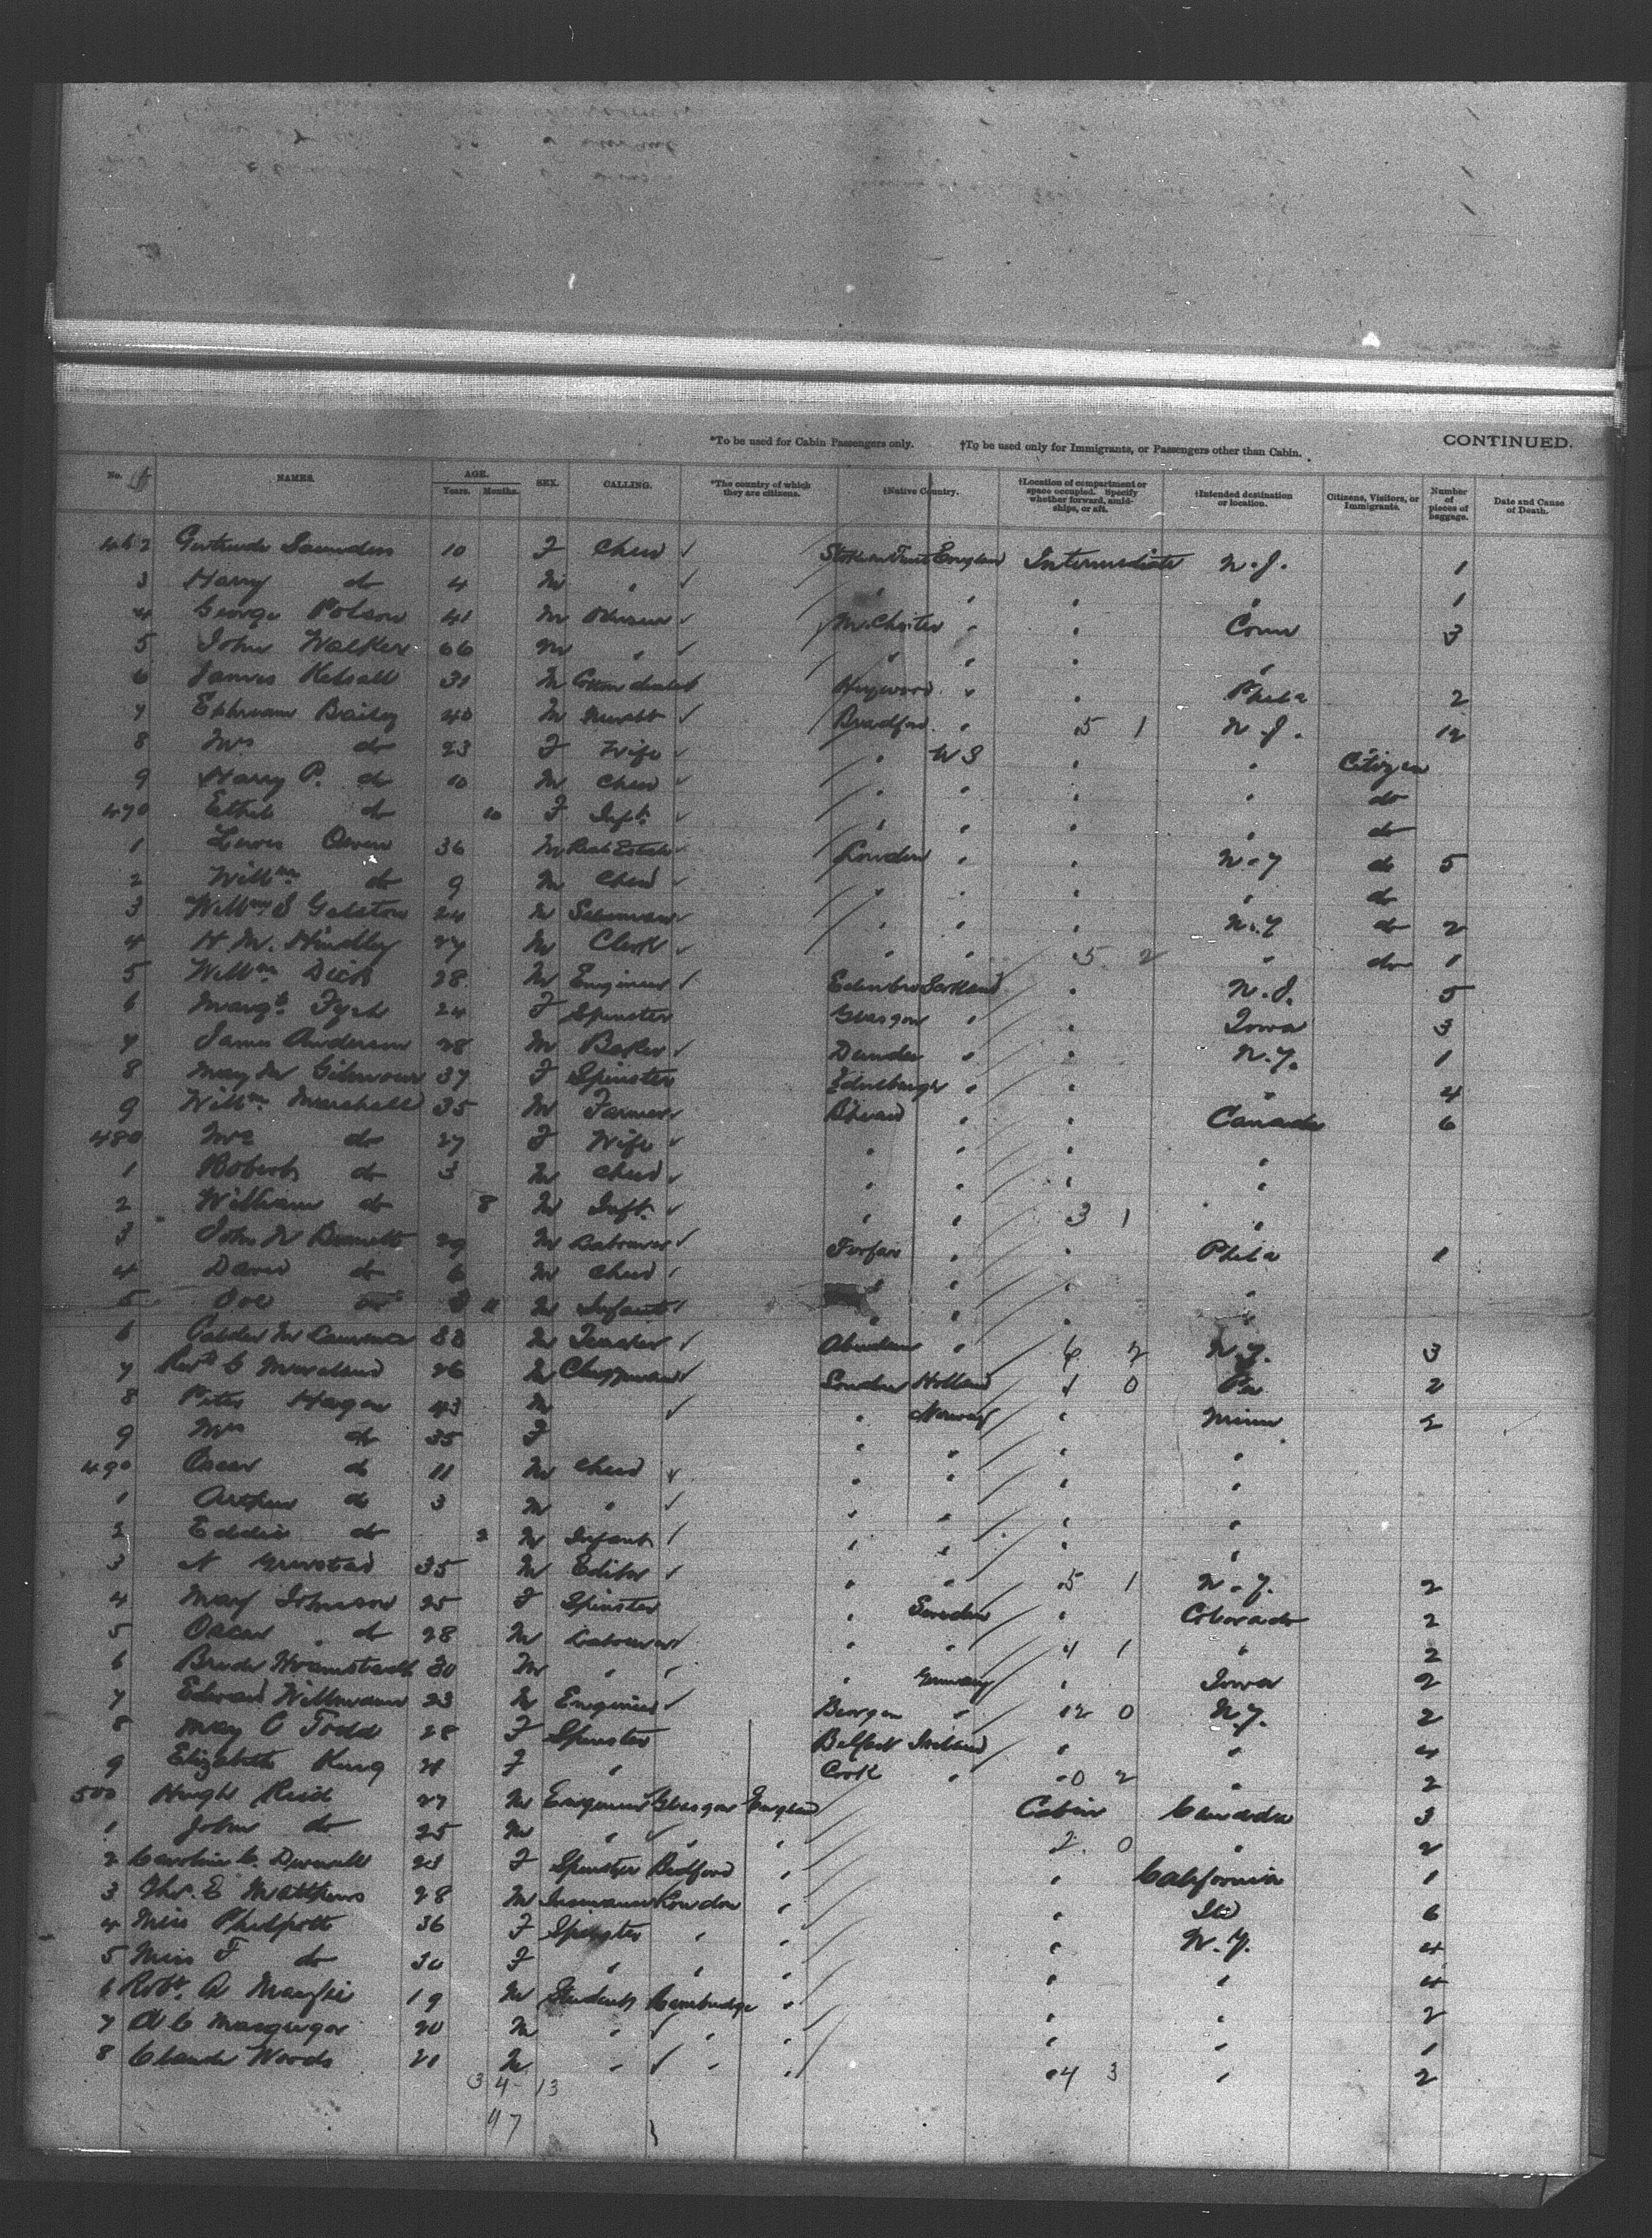 *To be used for Cabin Passengers only. †To be used only for Immigrants, or Passengers other than Cabin. CONTINUED.
No. NAMES. AGE. Years. Months. SEX. CALLING. *The country of which they are citizens. †Native Country. †Location of compartment or space occupied. Specify whether forward, amidships, or aft. †Intended destination or location. Citizens, Visitors, or Immigrants. Number of pieces of baggage. Date and Cause of Death.
462 Gertrude Saunders 10 F Child England Intermediate N.J. 1
3 Harry do 4 M " " " " 1
4 George Polson 41 M M.Chester " " Conn 3
5 John Walker 66 M " " " " "
6 James Kelsall 31 M Cotton dealer Heywood " " Phila 2
7 Ephraim Bailey 40 M Bradford " 5 1 N.J. 12
8 Mrs do 23 F Wife " U S " " Citizen
9 Harry P. do 10 M Child " " " " do
470 Ethel do 10 F Inft. " " " " do
1 Lewis Owen 36 M Real Estate London " " N-Y do 5
2 Willm do 9 M Child " " " " do
3 Willm. S Galston 24 M Salesman " " " N.Y do 2
4 H M. Hindley 27 M Clerk " " 5 2 " do 1
5 Willm Dick 28 M Engineer Edinbro Scotland " N.J. 5
6 Margt. 24 F Spinster Glasgow " " Iowa 3
7 James Anderson 28 M Baker Dundee " " N.Y. 1
8 May M Gilmour 37 F Spinster Edinburgh " " " 4
9 Willm. Marshall 35 M Farmer " " Canada 6
480 Mrs do 27 F Wife " " " "
1 Robert do 3 M Child " " " "
2 William do 8 M Inft. " " 3 1 "
3 John W Bennett 29 M Labourer Forfar " " Phila 1
4 David do 6 M Child " " " "
5 do 11 M Infant " " "
6 Calder M Lawrence 38 M Teacher Aberdeen " 6 2 N.Y. 3
7 Revd G Moreland 26 M Clergyman London Holland 1 0 Pa 2
8 Peter Hagen 43 M " Norway " Minn 2
9 Mrs do 35 F " " " "
490 Oscar do 11 M Child " " " "
1 Arthur do 3 M " " " " "
2 Eddie do 2 M Infant " " " "
3 N Grinstad 35 M Editor " " 5 1 N-Y. 2
4 Mary Johnson 25 F Spinster " Sweden " Colorado 2
5 Oscar do 28 M Labourer " " 4 1 " 2
6 30 M " " Germany " Iowa 2
7 Edward Willmann 23 M Engineer Bergen " 12 0 N.Y. 2
8 May C Todd 28 F Spinster Belfast Ireland " " 4
9 Elizabeth King 21 F " Cork " 0 2 " 2
500 Hugh Reid 27 M Engineer Glasgow England Cabin Canada 3
1 John do 25 M " " " 2 0 " 2
2 Caroline C. 23 F Spinster Bedford " " California 1
3 Thos. E Matthews 28 M Insurance London " " Ill 6
4 Miss Philpott 36 F Spinster " " " N.Y. 4
5 Miss F do 30 F " " " " " 4
6 Robt. A 19 M Student Cambridge " " " 2
7 A C Macgregor 20 M " " " " " 1
8 Claude Woods 21 M " " " 4 3 " 2
34-13
47